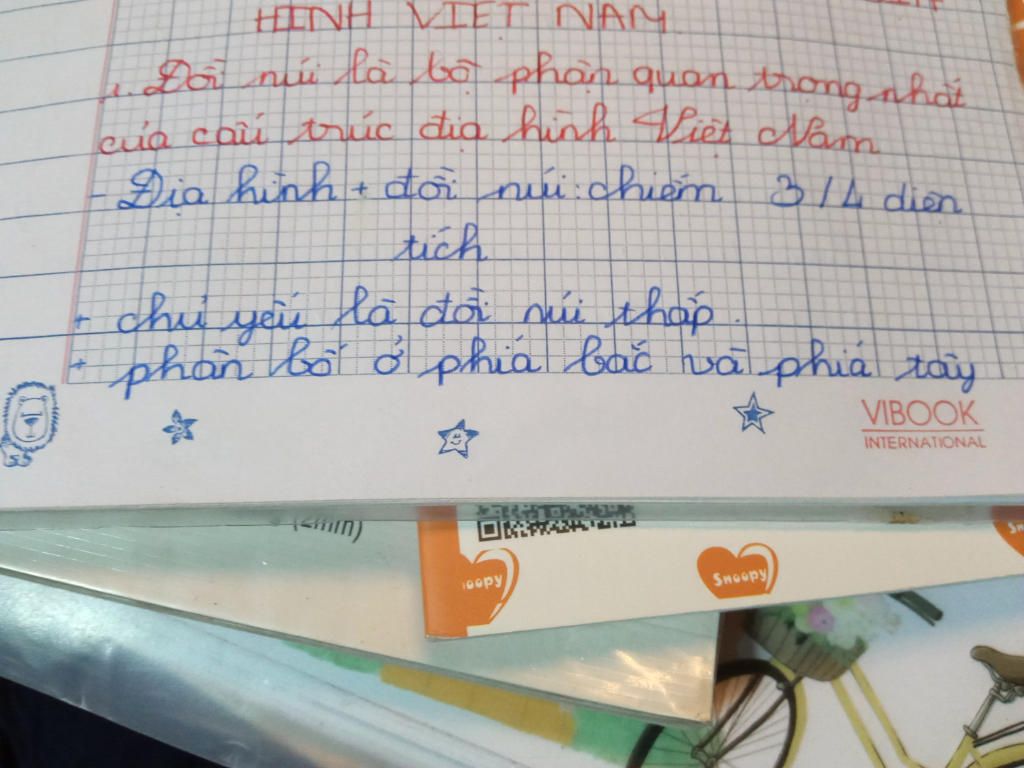 HÌNH VIỆT NAM
1. Đồi núi là bộ phận quan trọng nhất
của cấu trúc địa hình Việt Nam
- Địa hình + đồi núi: chiếm 3/4 diện
tích
+ chủ yếu là đồi núi thấp.
+ phân bố ở phía bắc và phía tây
VIBOOK
INTERNATIONAL
(2mm)
Snoopy